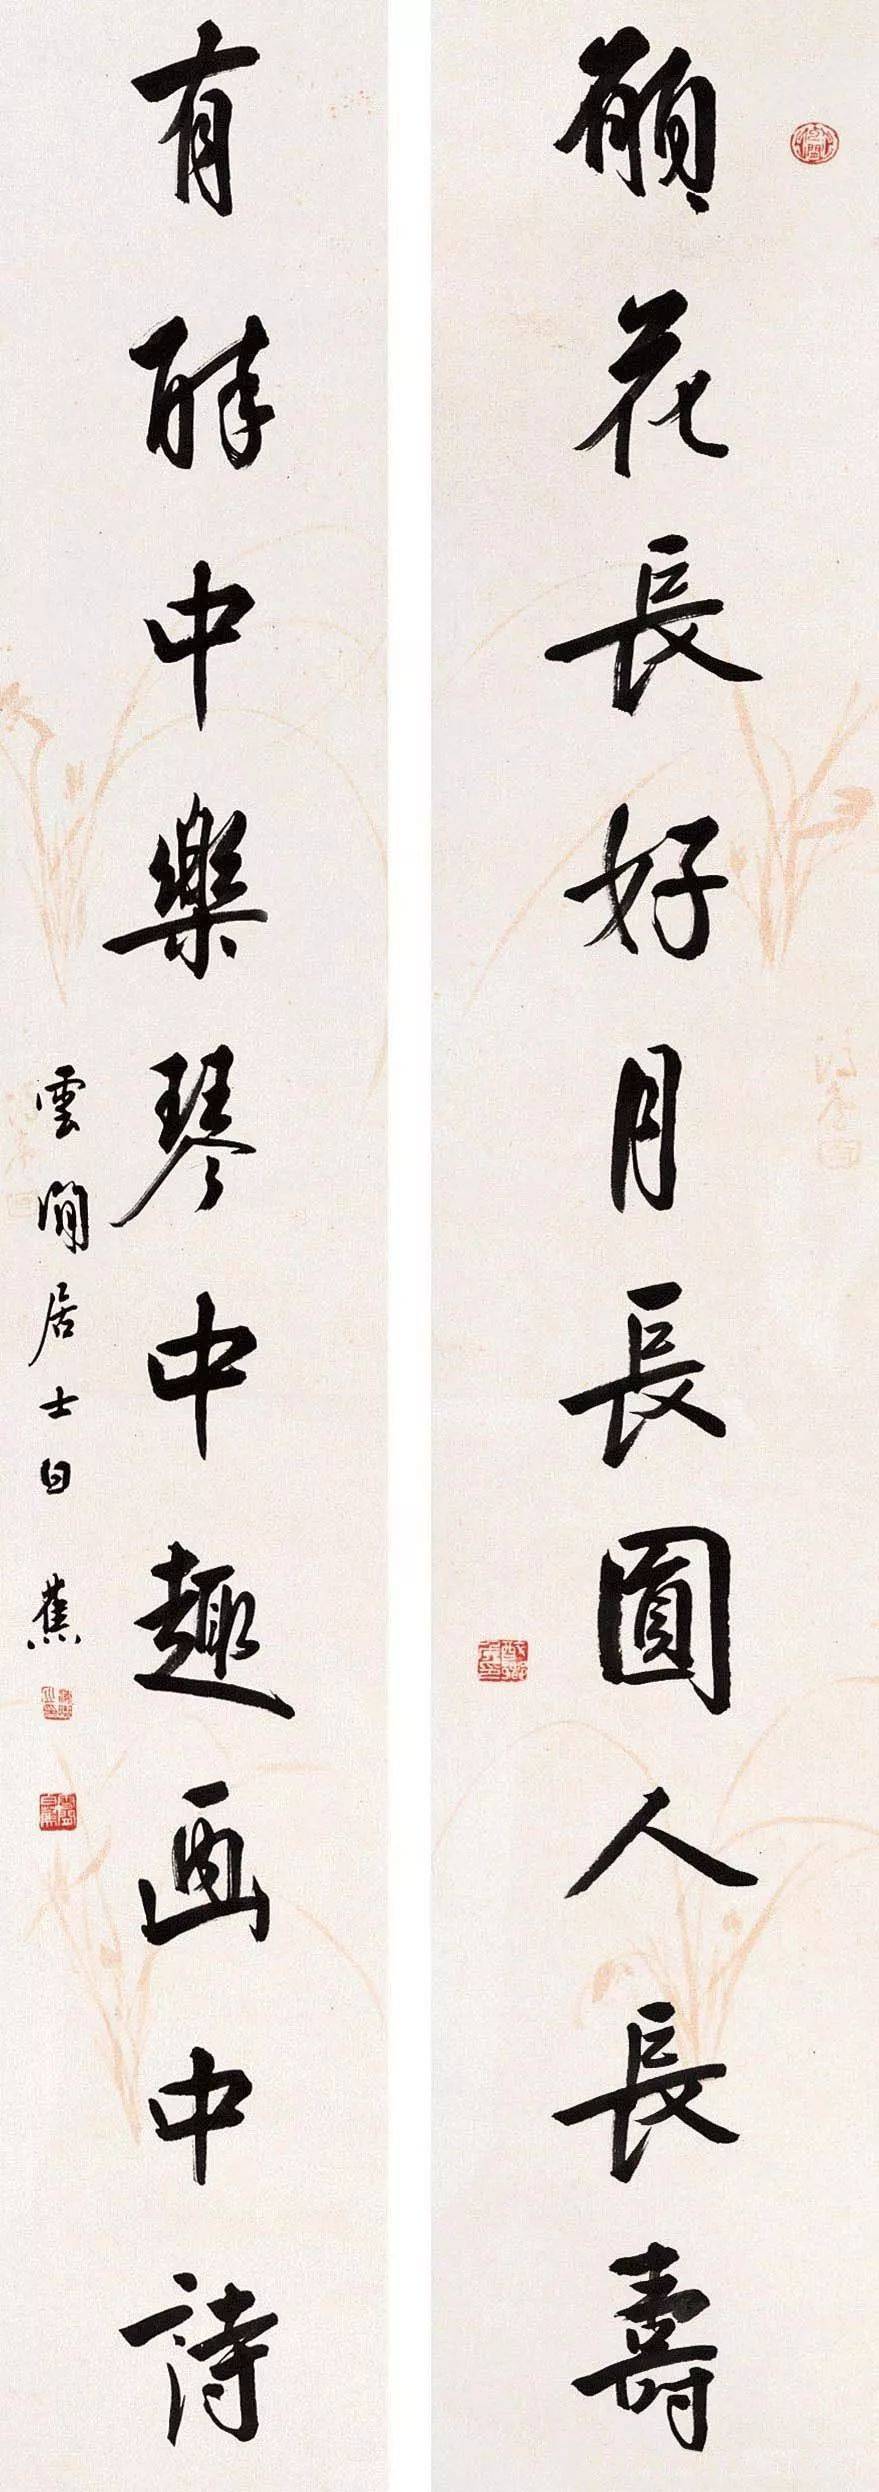 願花長好月長圓人長壽
有酔中樂琴中趣画中詩
雲閒居士白蕉